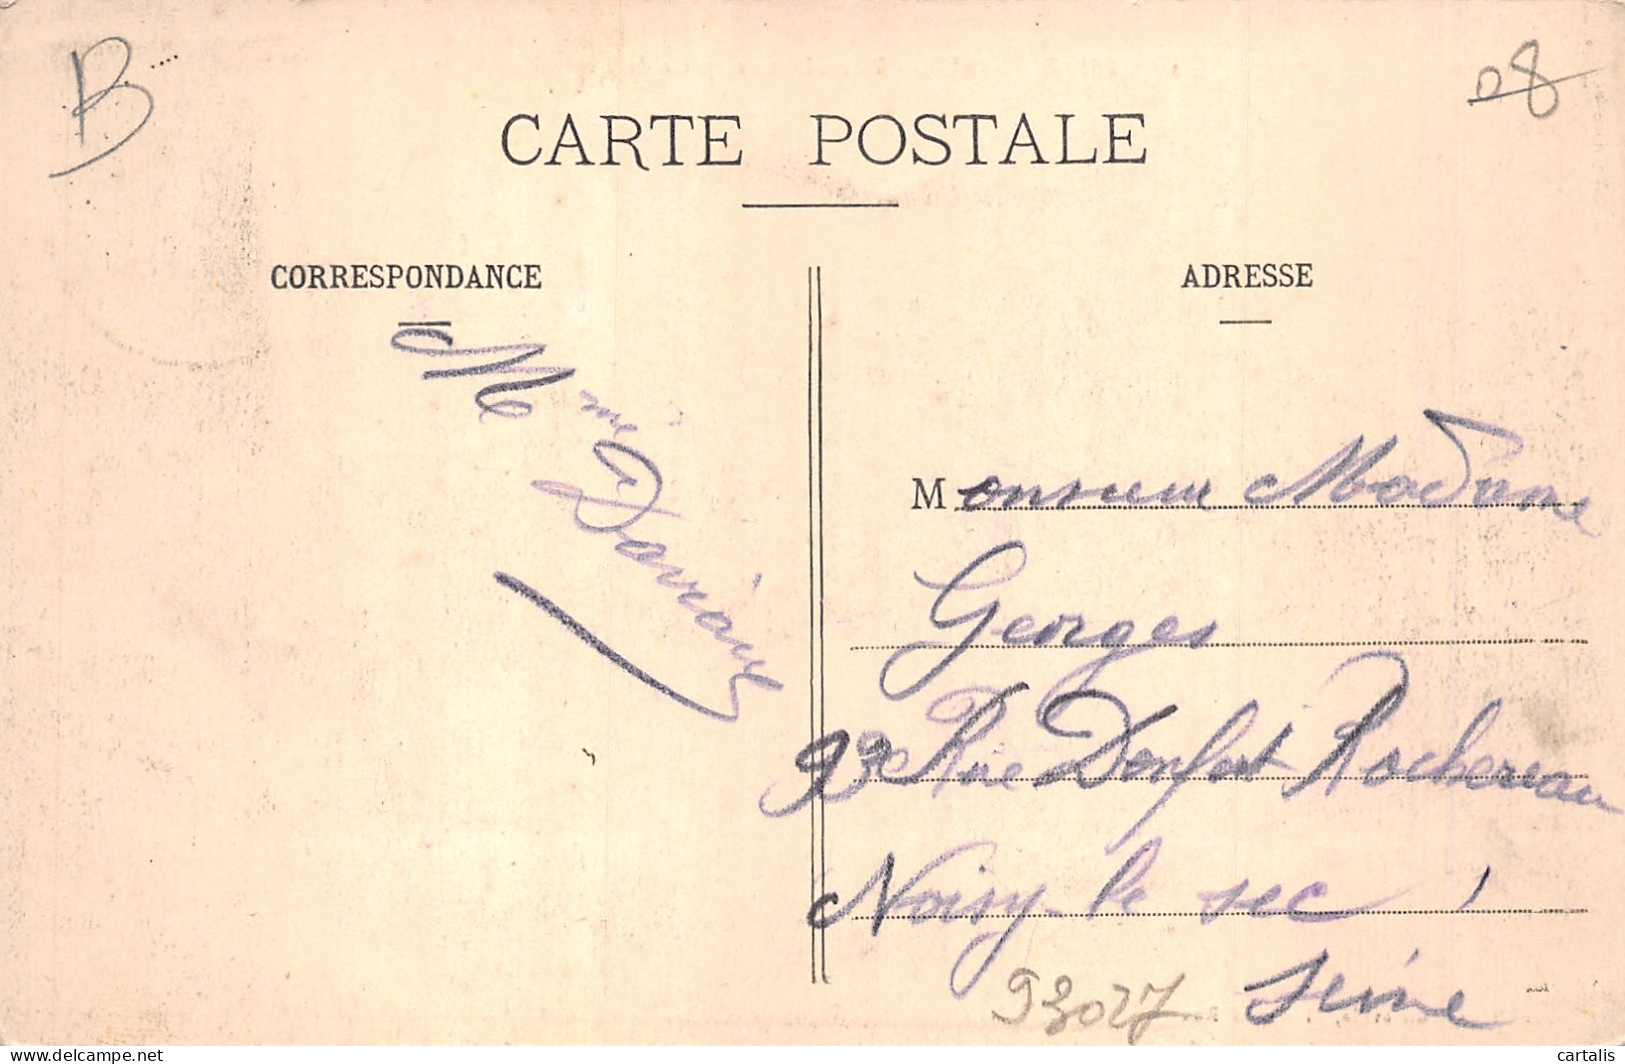 B
08
CARTE POSTALE
CORRESPONDANCE
ADRESSE
Mme
Monsieur Madame
Georges
Rue Denfert Rochereau
Noisy-le sec
Seine
93027
delcampe.net
cartalis